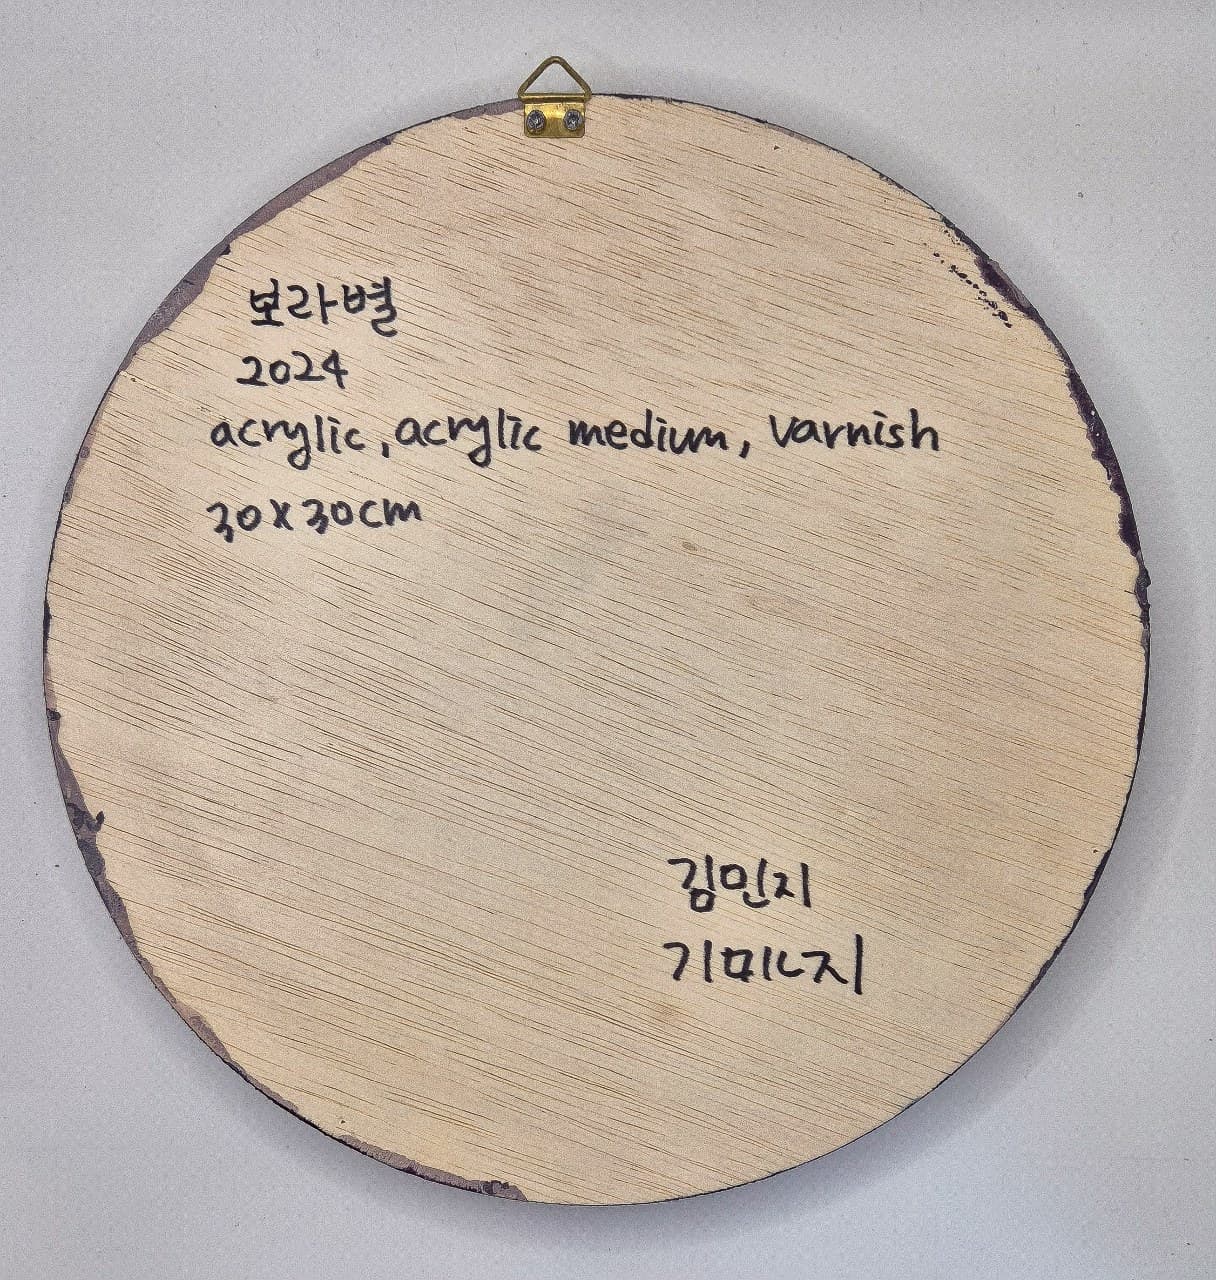 보라별
2024
acrylic, acrylic medium, varnish
30x30cm
김민지
기미ㄴ지